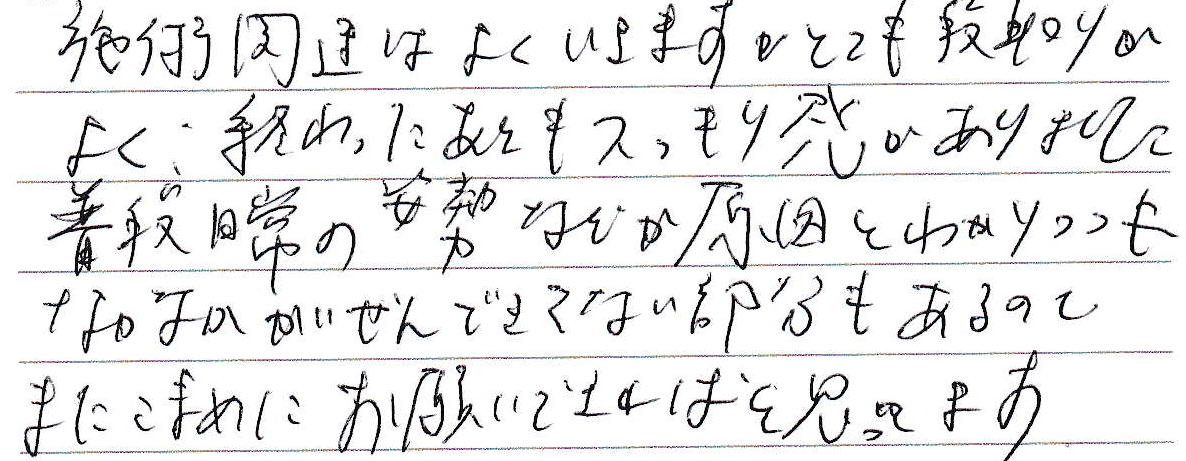 施術関連はよくいきますがとても段取りが
よく、終わったあともスッキリ感がありました
普段日常の姿勢などが原因とわかりつつも
なかなかかいぜんできてない部分もあるので
またこまめにお願いできればと思ってます